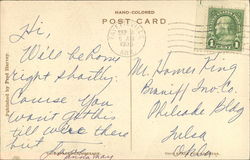 HAND-COLORED
POST CARD
Published by Fred Harvey
Hi,
Will be home
right shortly.
Course you
won't get this
till we're there
but
Mr. Homer King
Braniff Inv. Co.
Philcade Bldg
Tulsa
Okla
1